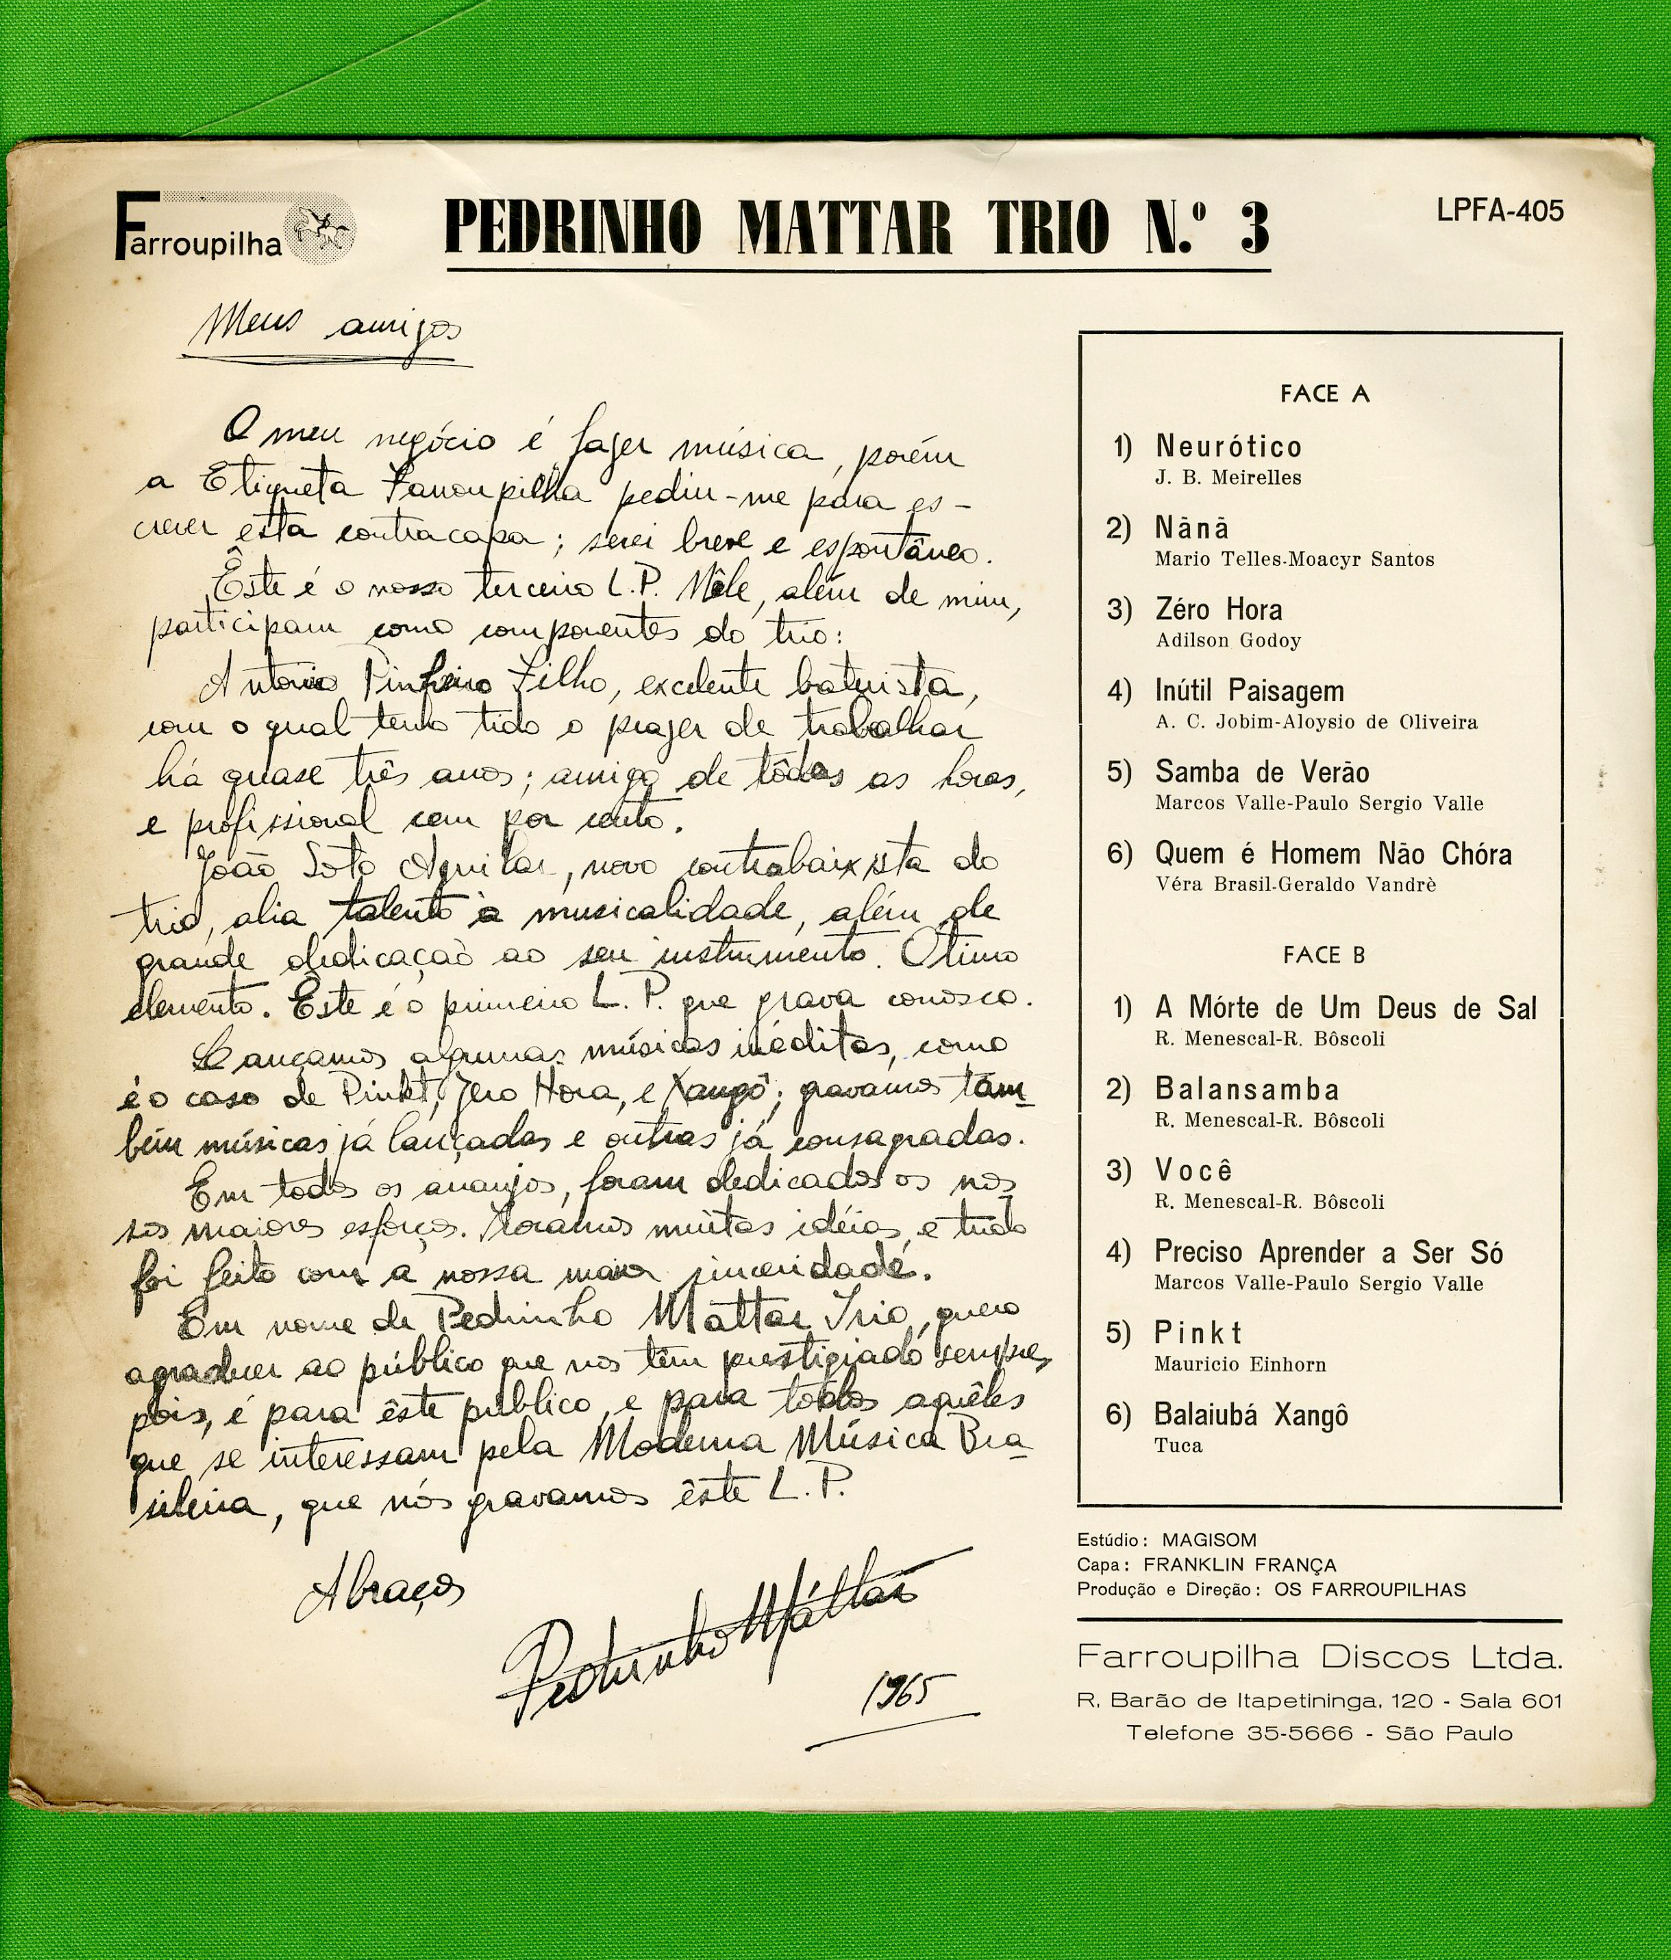 Farroupilha
PEDRINHO MATTAR TRIO N.º 3
LPFA-405
Meus amigos
O meu negócio é fazer música, porém
a Etiqueta Farroupilha pediu-me para es-
crever esta contracapa; serei breve e espontâneo.
Êste é o nosso terceiro L.P. Nêle, além de mim,
participam como componentes do trio:
Antonio Pinheiro Filho, excelente baterista,
com o qual tenho tido o prazer de trabalhar
há quase três anos; amigo de tôdas as horas,
e profissional cem por cento.
João Soto Aguilar, novo contrabaixista do
trio, alia talento à musicalidade, além de
grande dedicação ao seu instrumento. Ótimo
elemento. Êste é o primeiro L.P. que grava conosco.
Lançamos algumas músicas inéditas, como
é o caso de Pinkt, Zero Hora, e Xangô; gravamos tam-
bém músicas já lançadas e outras já consagradas.
Em todos os arranjos, foram dedicados os nos-
sos maiores esforços. Trocamos muitas idéias, e tudo
foi feito com a nossa maior sinceridade.
Em nome de Pedrinho Mattar Trio, quero
agradecer ao público que nos têm prestigiado sempre,
pois, é para êste público, e para todos aquêles
que se interessam pela Moderna Música Bra-
sileira, que nós gravamos êste L.P.
Abraços
Pedrinho Mattar
1965
FACE A
1) Neurótico
J. B. Meirelles
2) Nãnã
Mario Telles-Moacyr Santos
3) Zéro Hora
Adilson Godoy
4) Inútil Paisagem
A. C. Jobim-Aloysio de Oliveira
5) Samba de Verão
Marcos Valle-Paulo Sergio Valle
6) Quem é Homem Não Chóra
Véra Brasil-Geraldo Vandrè
FACE B
1) A Mórte de Um Deus de Sal
R. Menescal-R. Bôscoli
2) Balansamba
R. Menescal-R. Bôscoli
3) Você
R. Menescal-R. Bôscoli
4) Preciso Aprender a Ser Só
Marcos Valle-Paulo Sergio Valle
5) Pinkt
Mauricio Einhorn
6) Balaiubá Xangô
Tuca
Estúdio: MAGISOM
Capa: FRANKLIN FRANÇA
Produção e Direção: OS FARROUPILHAS
Farroupilha Discos Ltda.
R. Barão de Itapetininga, 120 - Sala 601
Telefone 35-5666 - São Paulo